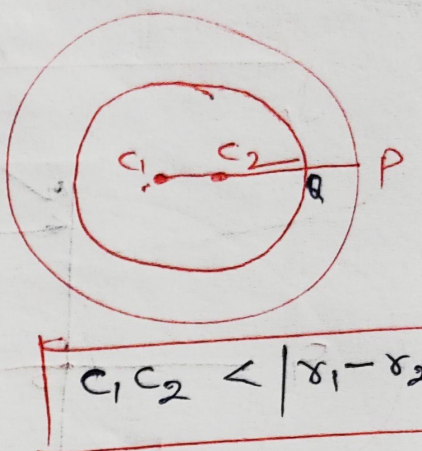 C₁ C₂ P
Q
C₁C₂ < |r₁-r₂